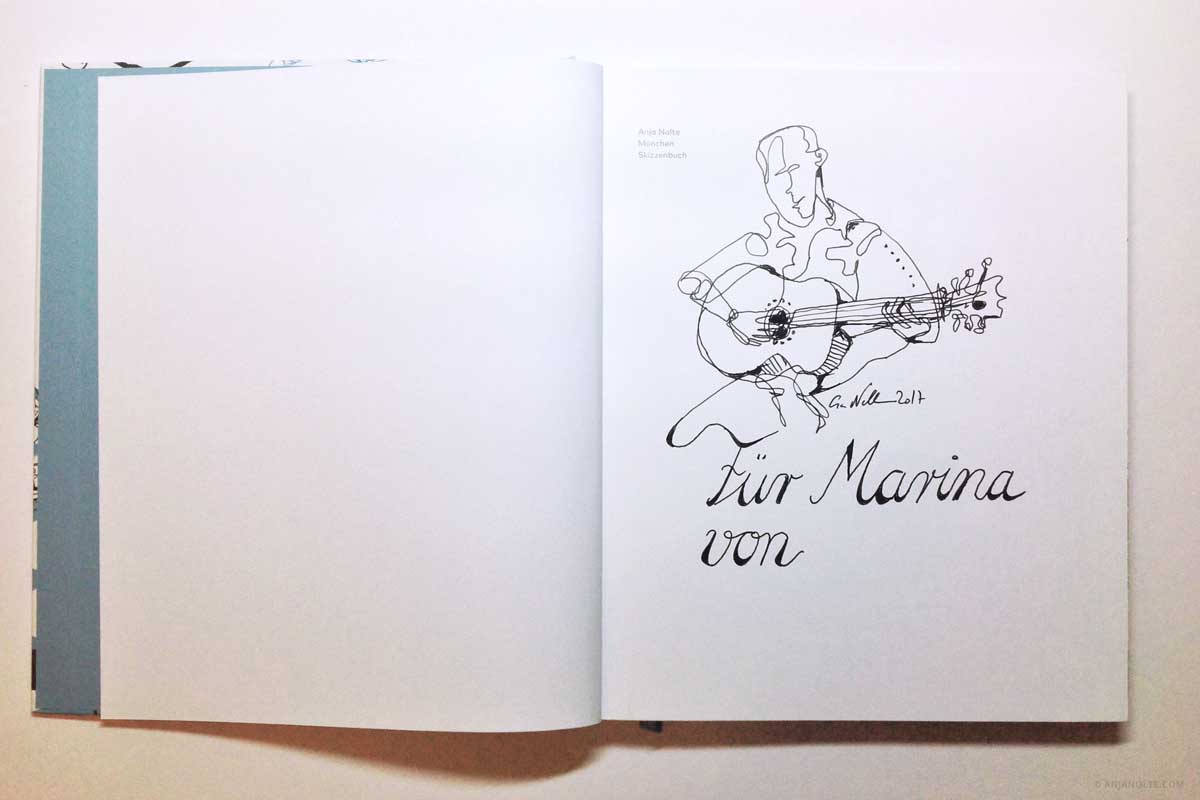 Anja Nolte
München
Skizzenbuch
2017
Für Marina
von
© ANJANOLTE.COM